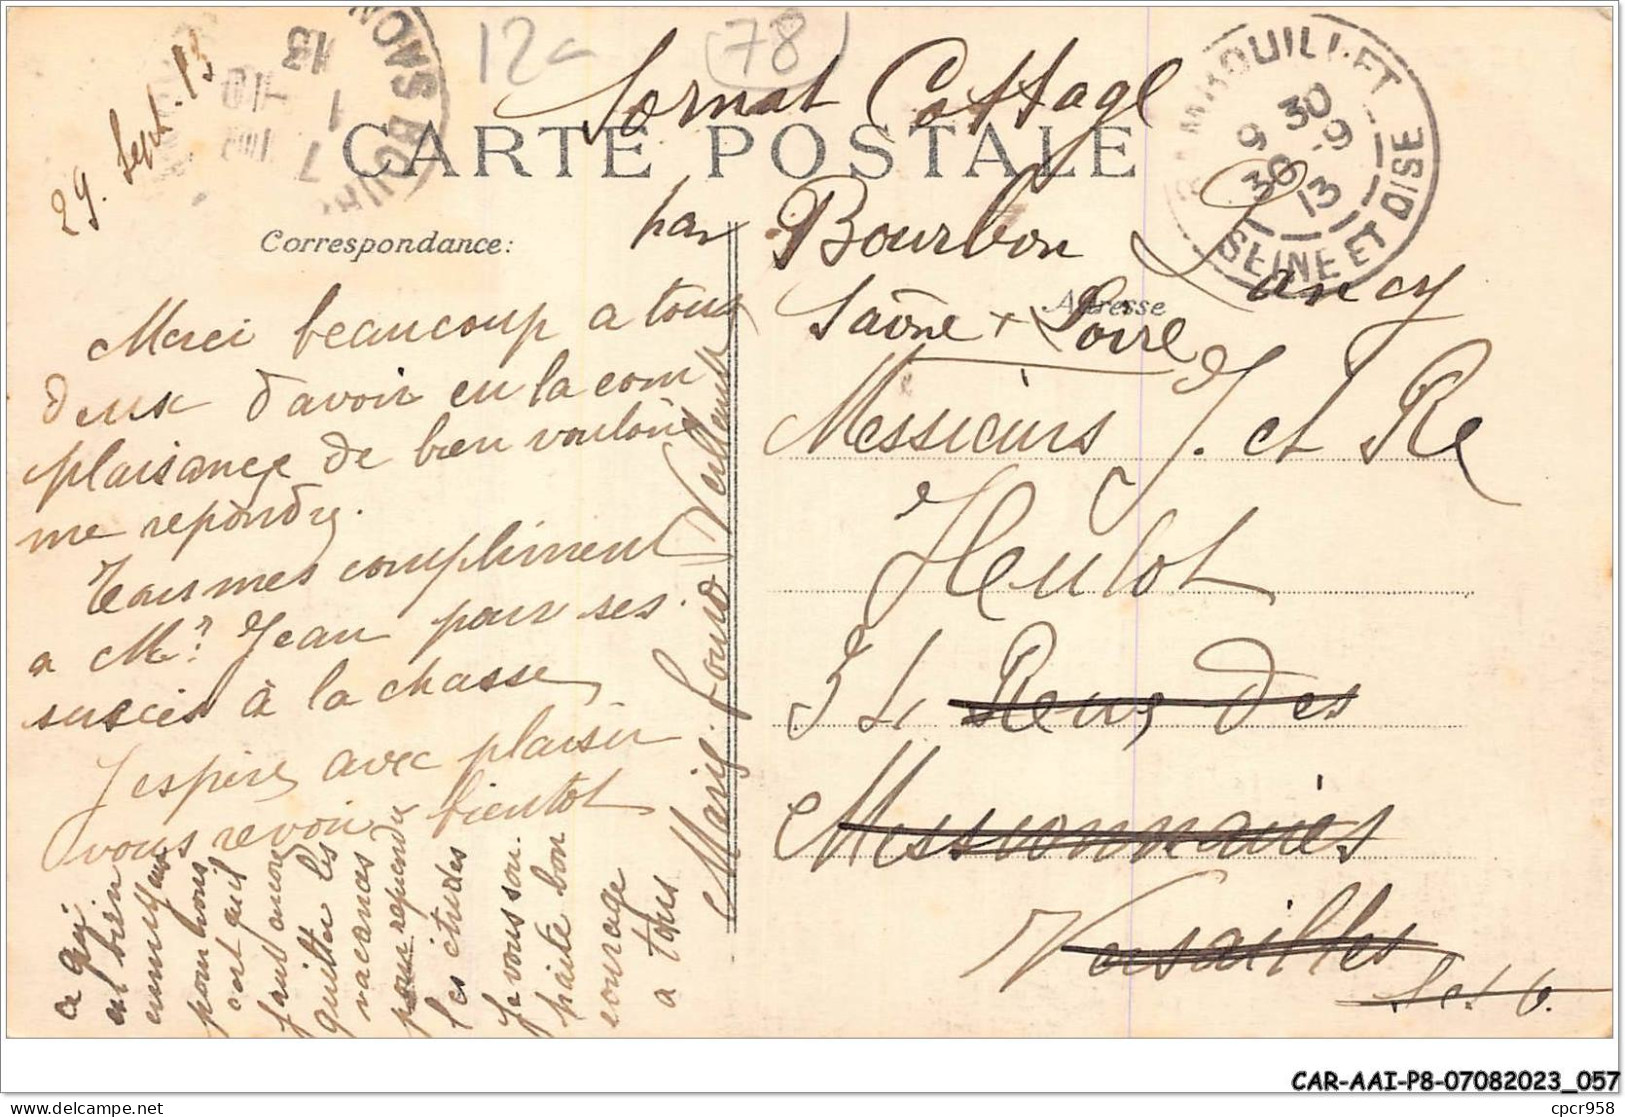 12c
(78)
29. Sept. 13
Sornat Cottage
CARTE POSTALE
par Bourbon Lancy
Saône & Loire
RAMBOUILLET
9 30
30 - 9
13
SEINE ET OISE
7
1 -10
13
Correspondance:
Adresse
Merci beaucoup a tous
deux d'avoir eu la com
plaisance de bien vouloir
me repondre.
Tous mes compliment
a Mr Jean pour ses
succès à la chasse
J espire avec plaisir
vous revoir bientot
ce qui
est bien
ennuyeux
pour vous
c'est qu'il
faut encore
quitter les
vacances
pour reprendre
les etudes
Je vous sou
haite bon
courage
a tous
Marie Louise
Messieurs J. et Re
Heulot
34 Rue des
Missionnaires
Versailles
S et O.
CAR-AAI-P8-07082023_057
cpcr958